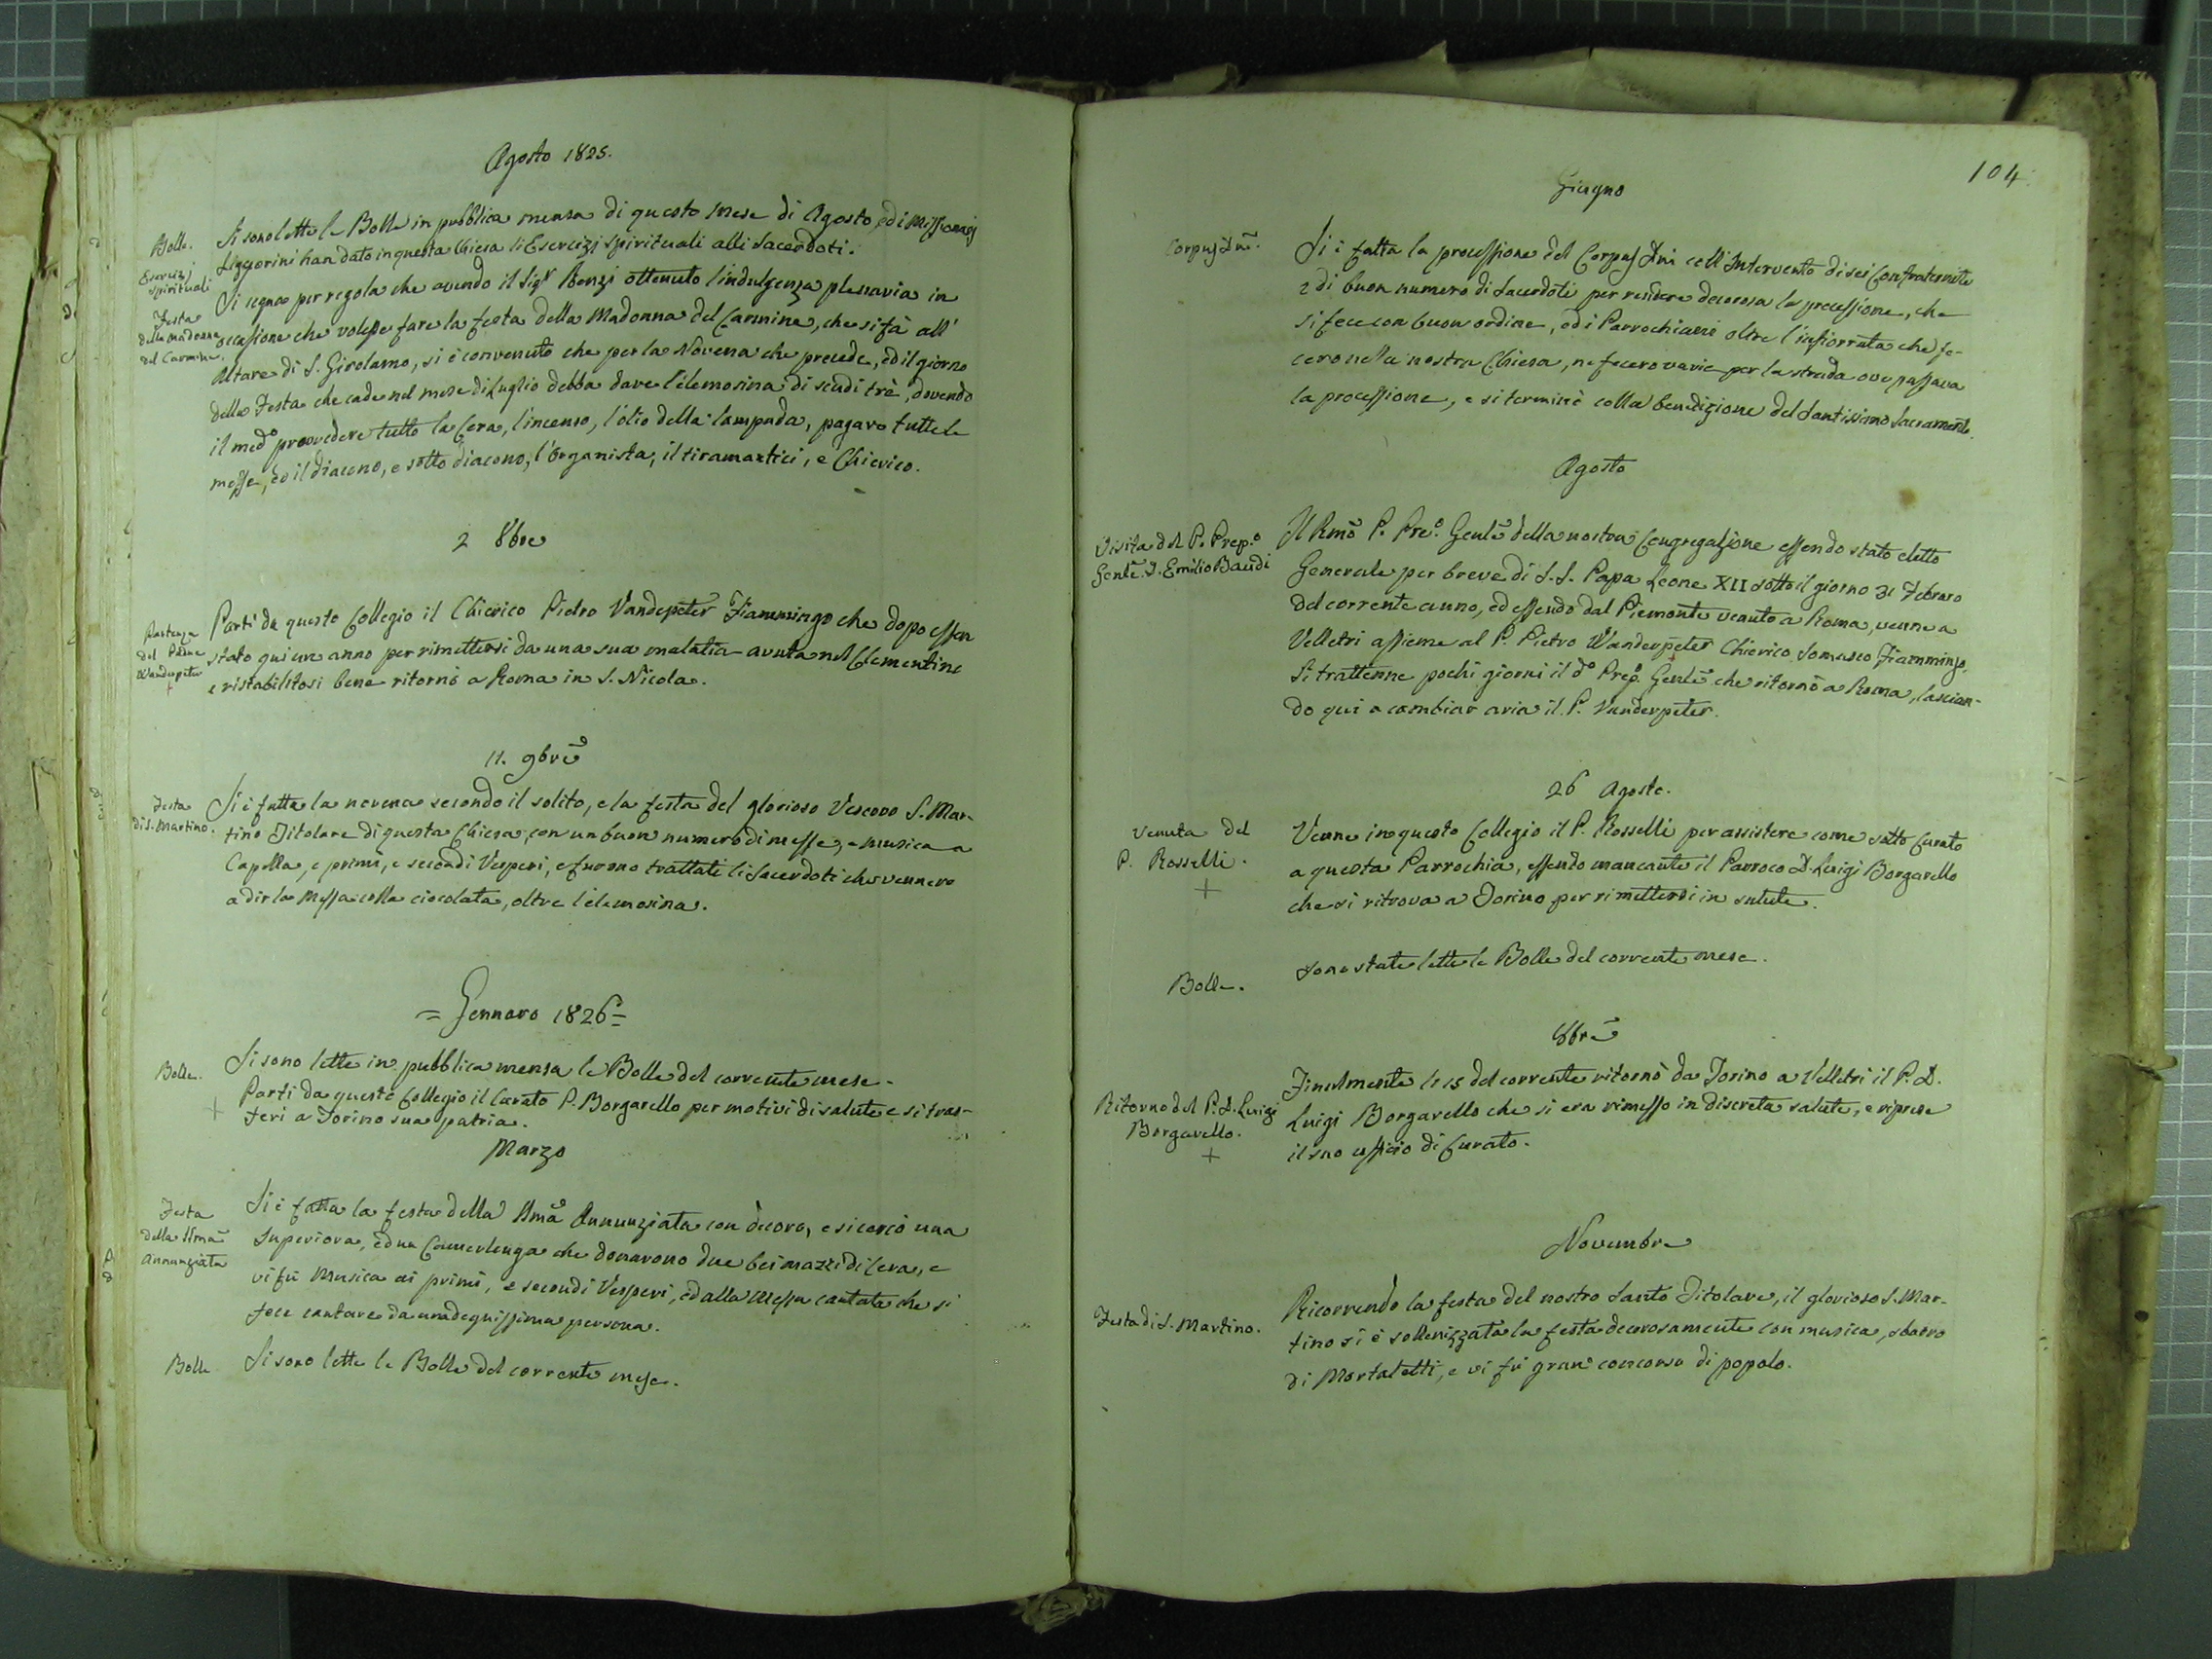 Agosto 1825.
Bolle.
Si sono lette le Bolle in pubblica mensa di questo Mese di Agosto, ed i Missionarj
Esercizj
spirituali
Liguorini han dato in questa Chiesa li Esercizj spirituali alli Sacerdoti.
Festa
della Madonna
del Carmine.
Si segna per regola che avendo il Sigr Renzi ottenuto l'indulgenza plenaria in
occasione che volesse fare la festa della Madonna del Carmine, che si fà all'
Altare di S. Girolamo, si è convenuto che per la Novena che precede, ed il giorno
della Festa che cade nel mese di Luglio debba dare l'elemosina di scudi trè, dovendo
il medo provvedere tutta la Cera, l'incenso, l'olio della lampada, pagare tutte le
messe, ed il diacono, e sotto diacono, l'organista, il tiramantici, e Chierico.
2 8bre
Partenza
del Padre
Wanderpeter
+
Partì da questo Collegio il Chierico Pietro Vandepeter Fiammingo che dopo essere
stato qui un anno per rimettersi da una sua malatia avuta nel Clementino
e ristabilitosi bene ritornò a Roma in S. Nicola.
11. 9bre
Festa
di S. Martino.
Si è fatta la novena secondo il solito, e la festa del glorioso Vescovo S. Mar-
tino Titolare di questa Chiesa, con un buon numero di messe, e musica a
Capella, e primi, e secondi Vesperi, e furono trattati li Sacerdoti che vennero
a dir la Messa colla ciocolata, oltre l'elemosina.
= Gennaro 1826 =
Bolle.
Si sono lette in pubblica mensa le Bolle del corrente mese.
+
Partì da questo Collegio il Curato P. Borgarello per motivi di salute e si tras-
ferì a Torino sua patria.
Marzo
Festa
della SSma
Annunziata
Si è fatta la festa della SSma Annunziata con decoro, e si cercò una
Superiora, ed una Camerlenga che donarono due bei mazzi di Cera, e
vi fù Musica ai primi, e secondi Vesperi, ed alla Messa cantata che si
fece cantare da una degnissima persona.
Bolle
Si sono lette le Bolle del corrente mese.
104.
Giugno
Corpus Dni.
Si è fatta la processione del Corpus Dni coll'intervento di sei Confraternite
e di buon numero di Sacerdoti per rendere decorosa la processione, che
si fece con buon ordine, ed i Parrochiani oltre l'infiorata che fe-
cero nella nostra Chiesa, ne fecero varie per la strada ove passava
la processione, e si terminò colla benedizione del Santissimo Sacramento.
Agosto
Visita del P. Prep.o
Genle. D. Emilio Baudi
Il Rmo P. Pre.o Genle della nostra Congregazione essendo stato eletto
Generale per breve di S.S. Papa Leone XII sotto il giorno 31 Febraro
del corrente anno, ed essendo dal Piemonte venuto a Roma, venne a
Velletri assieme al P. Pietro Wanderpeter Chierico Somasco Fiammingo.
Si trattenne pochi giorni il do Prep.o Genle che ritornò a Roma, lascian-
do qui a cambiar aria il P. Vanderpeter.
26 Agosto.
Venuta del
P. Rosselli.
+
Venne in questo Collegio il P. Rosselli per assistere come sotto Curato
a questa Parrochia, essendo mancante il Parroco D. Luigi Borgarello
che si ritrova a Torino per rimettersi in salute.
Bolle.
Sono state lette le Bolle del corrente mese.
8bre
Ritorno del P. D. Luigi
Borgarello.
+
Finalmente li 15 del corrente ritornò da Torino a Velletri il P. D.
Luigi Borgarello che si era rimesso in discreta salute, e riprese
il suo ufficio di Curato.
Novembre
Festa di S. Martino.
Ricorrendo la festa del nostro Santo Titolare, il glorioso S. Mar-
tino si è sollenizzata la festa decorosamente con musica, sbarro
di Mortaletti, e vi fù gran concorso di popolo.